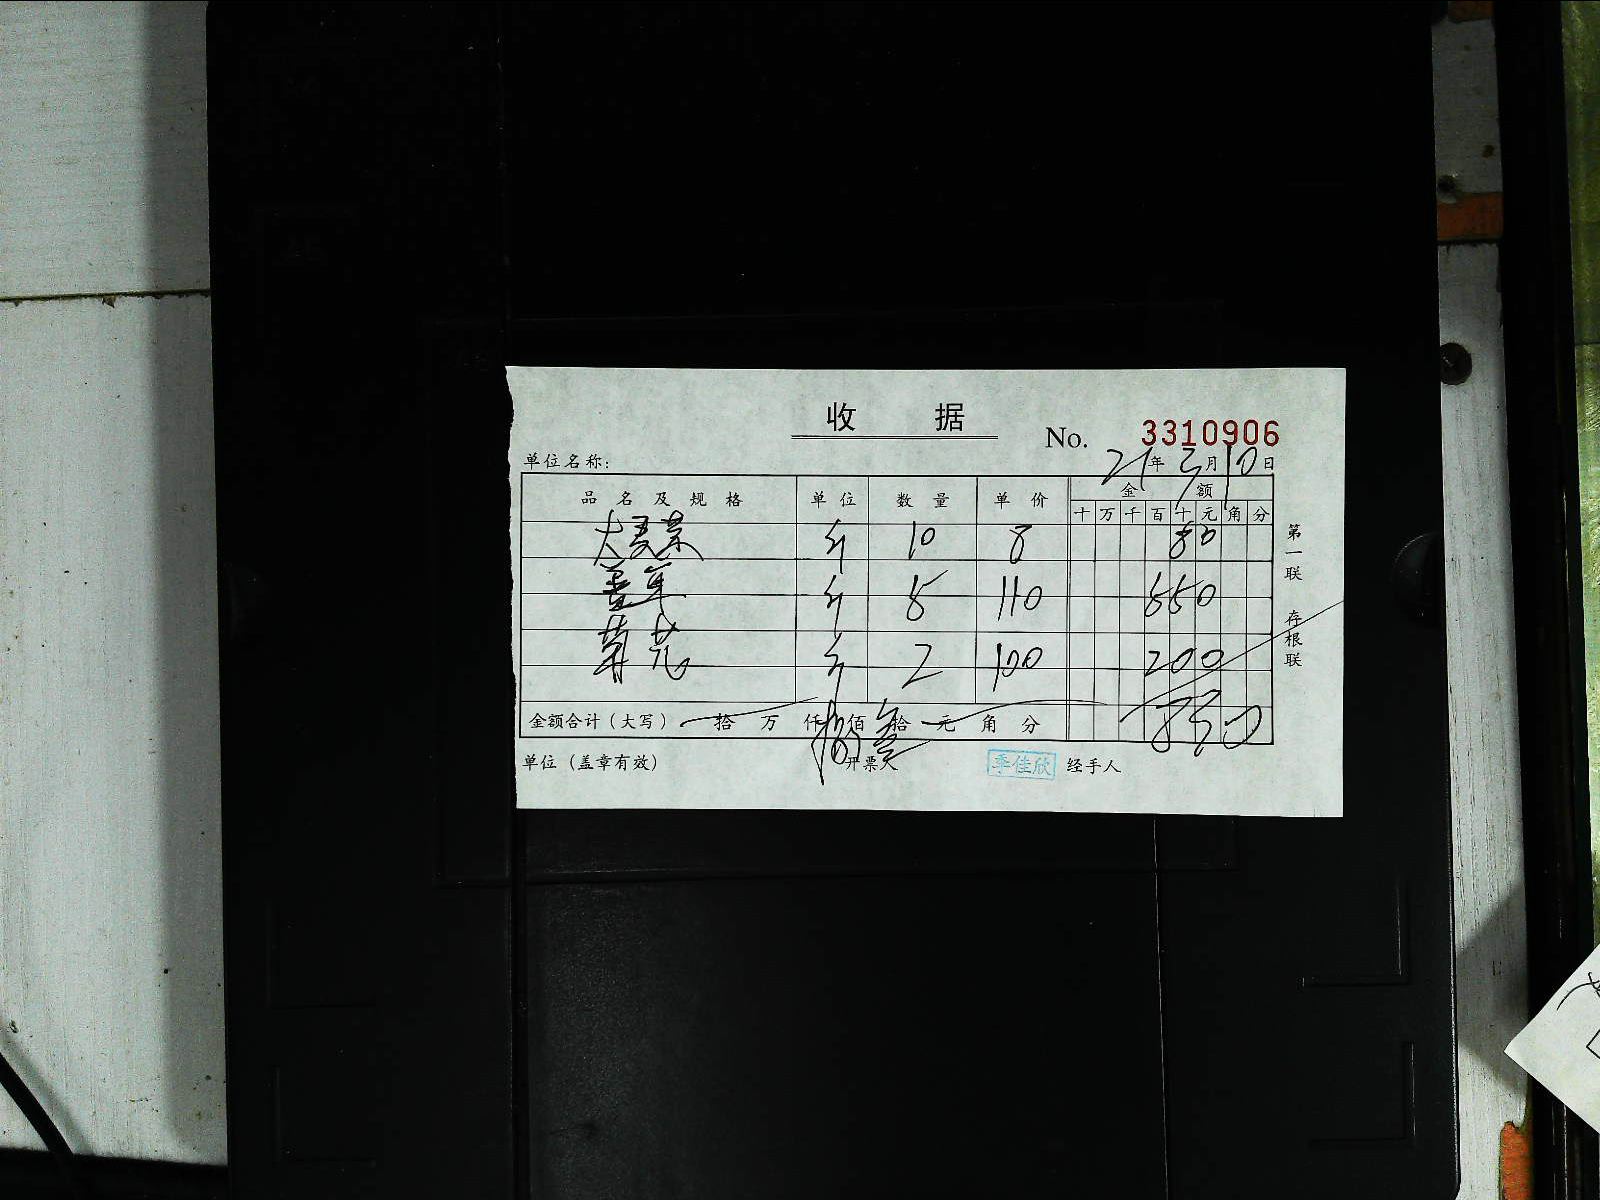 收 据
No. 3310906
单位名称:
21年3月10日
品名及规格 单位 数量 单价 金额
十万千百十元角分
大麦茶 斤 10 8 80
斤 5 110 550
菊花 斤 2 100 200
金额合计(大写) 拾 万 仟 佰 拾 元 角 分 830
单位(盖章有效) 开票人 季佳欣 经手人
第一联 存根联